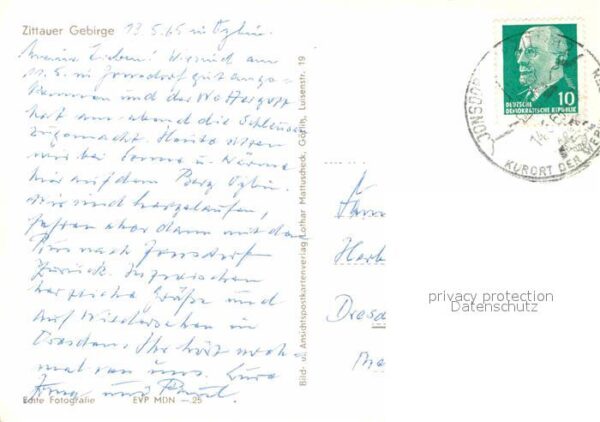 Zittauer Gebirge
13.5.65 in Oybin.
Meine Lieben! Wir sind am
11.5. in Jonsdorf gut ange-
kommen und der Wettergott
hat am abend die Schleusen
zugemacht. Heute sitzen
wir bei Sonne u. Wärme
hier auf dem Berg Oybin.
Wir sind hergelaufen,
fahren aber dann mit dem
Bus nach Jonsdorf
zurück. Inzwischen
herzliche Grüße und
auf Wiedersehen in
Dresden. Ihr hört noch
mal von uns. Eure
und
Echte Fotografie EVP MDN —.25
Bild- u. Ansichtspostkartenverlag Lothar Mattuscheck, Görlitz, Luisenstr. 19
DEUTSCHE
DEMOKRATISCHE REPUBLIK
10
JONSDORF
KURORT DER
Dresd
privacy protection
Datenschutz